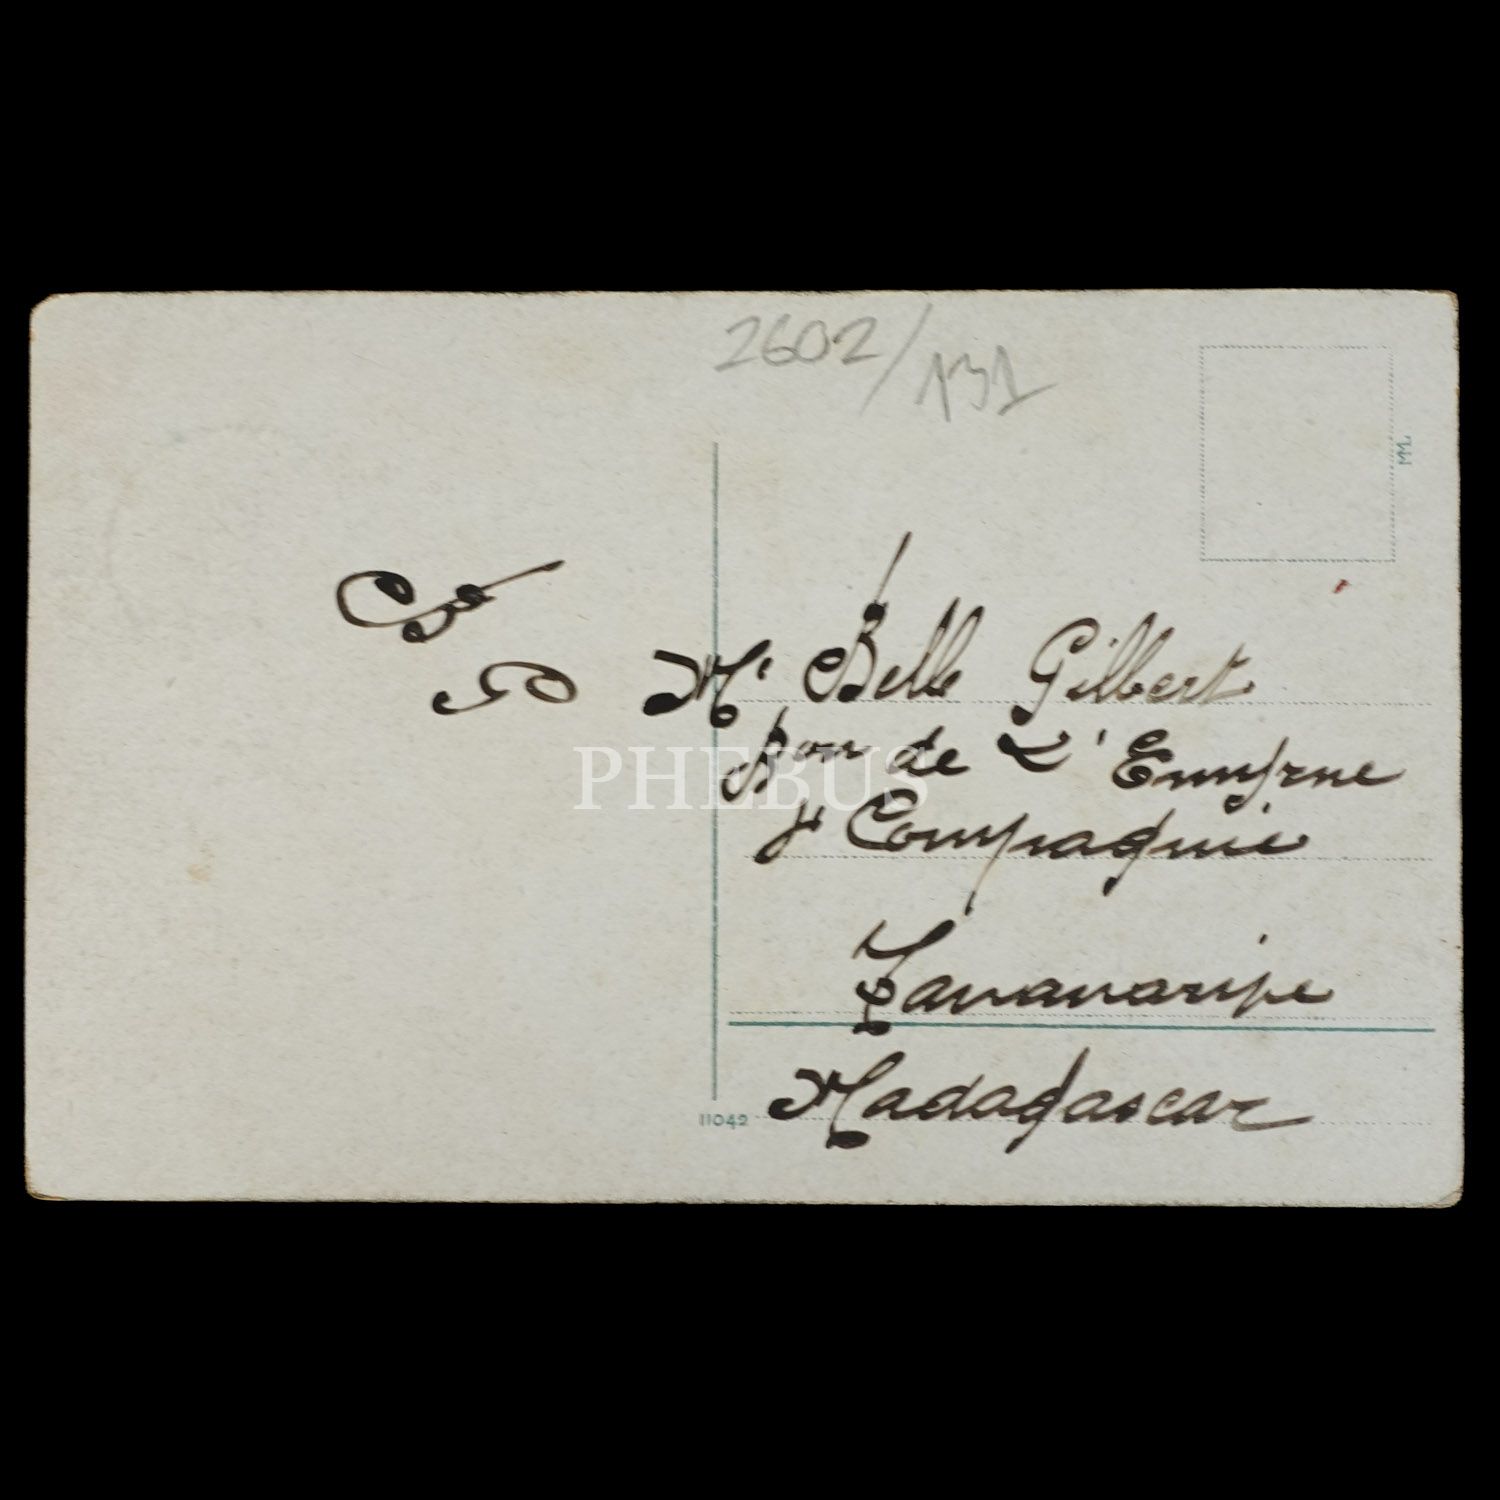 2602/131
MM
Mr Belle Gilbert
Bon de L'Emyrne
4e Compagnie
PHEBUS
Tananarive
Madagascar
11042